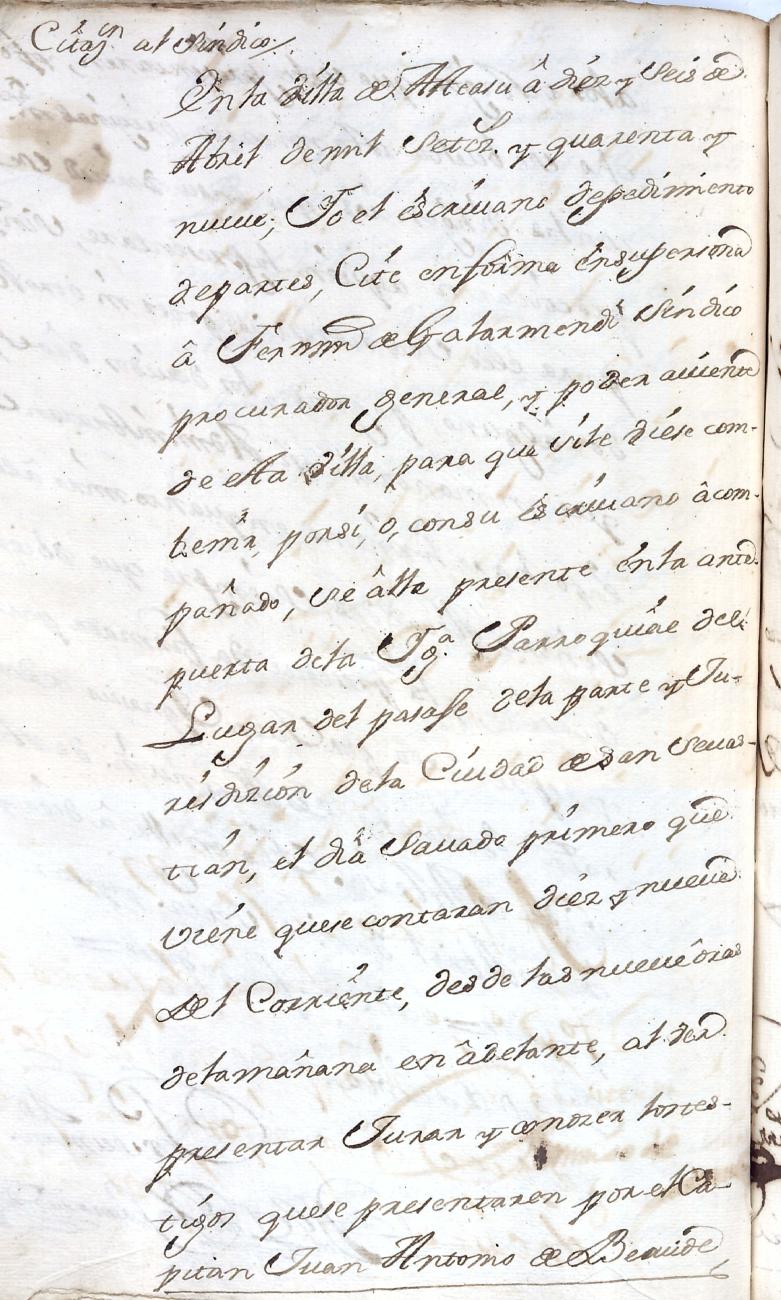 Citaçⁿ al Sindico,
En la Villa de Alteasu â diez y Seis de
Abril de mil Setezˢ. y quarenta y
nueue, Yo el escriuano de pedimiento
de partes, Cite en forma en su persona
â Fermin de Galarmendi Sindico
procurador general, y poder auiente
de esta Villa, para que si le diese com-
bemir, por si, o, con su escriuano âcom-
pañado, se âlle presente en la ante
puerta de la Ygᵃ. Parroquiâl del
Lugar del pasaJe de la parte y Ju-
risdizion de la Ciudad de San Seuas-
tian, el diâ Sauado primero que
viene que se contaran diez y nueue
del Corriente, desde las nueue ôras
de la mañana en âdelante, al ver
presentar Jurar y conozer los tes-
tigos que se presentaren por el Ca-
pitan Juan Antonio de Beauide